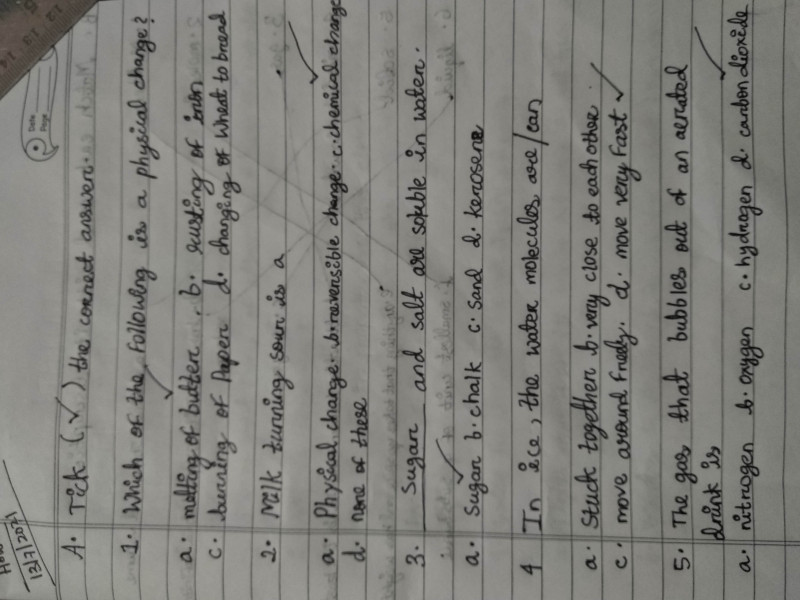 12/7/2021
Date
Page
A. Tick (✓) the correct answer.
1. Which of the following is a physical change?
a. melting of butter. b. rusting of iron
c. burning of Paper d. changing of wheat to bread
2. Milk turning sour is a
a. Physical change. b. reversible change. c. chemical change
d. none of these
3. Sugar and salt are soluble in water.
a. Sugar b. chalk c. sand d. kerosene
4 In ice, the water molecules are/can
a. Stuck together b. very close to each other.
c. move around freely. d. move very fast ✓
5. The gas that bubbles out of an aerated
drink is
a. nitrogen b. oxygen c. hydrogen d. carbon dioxide
12 13 14